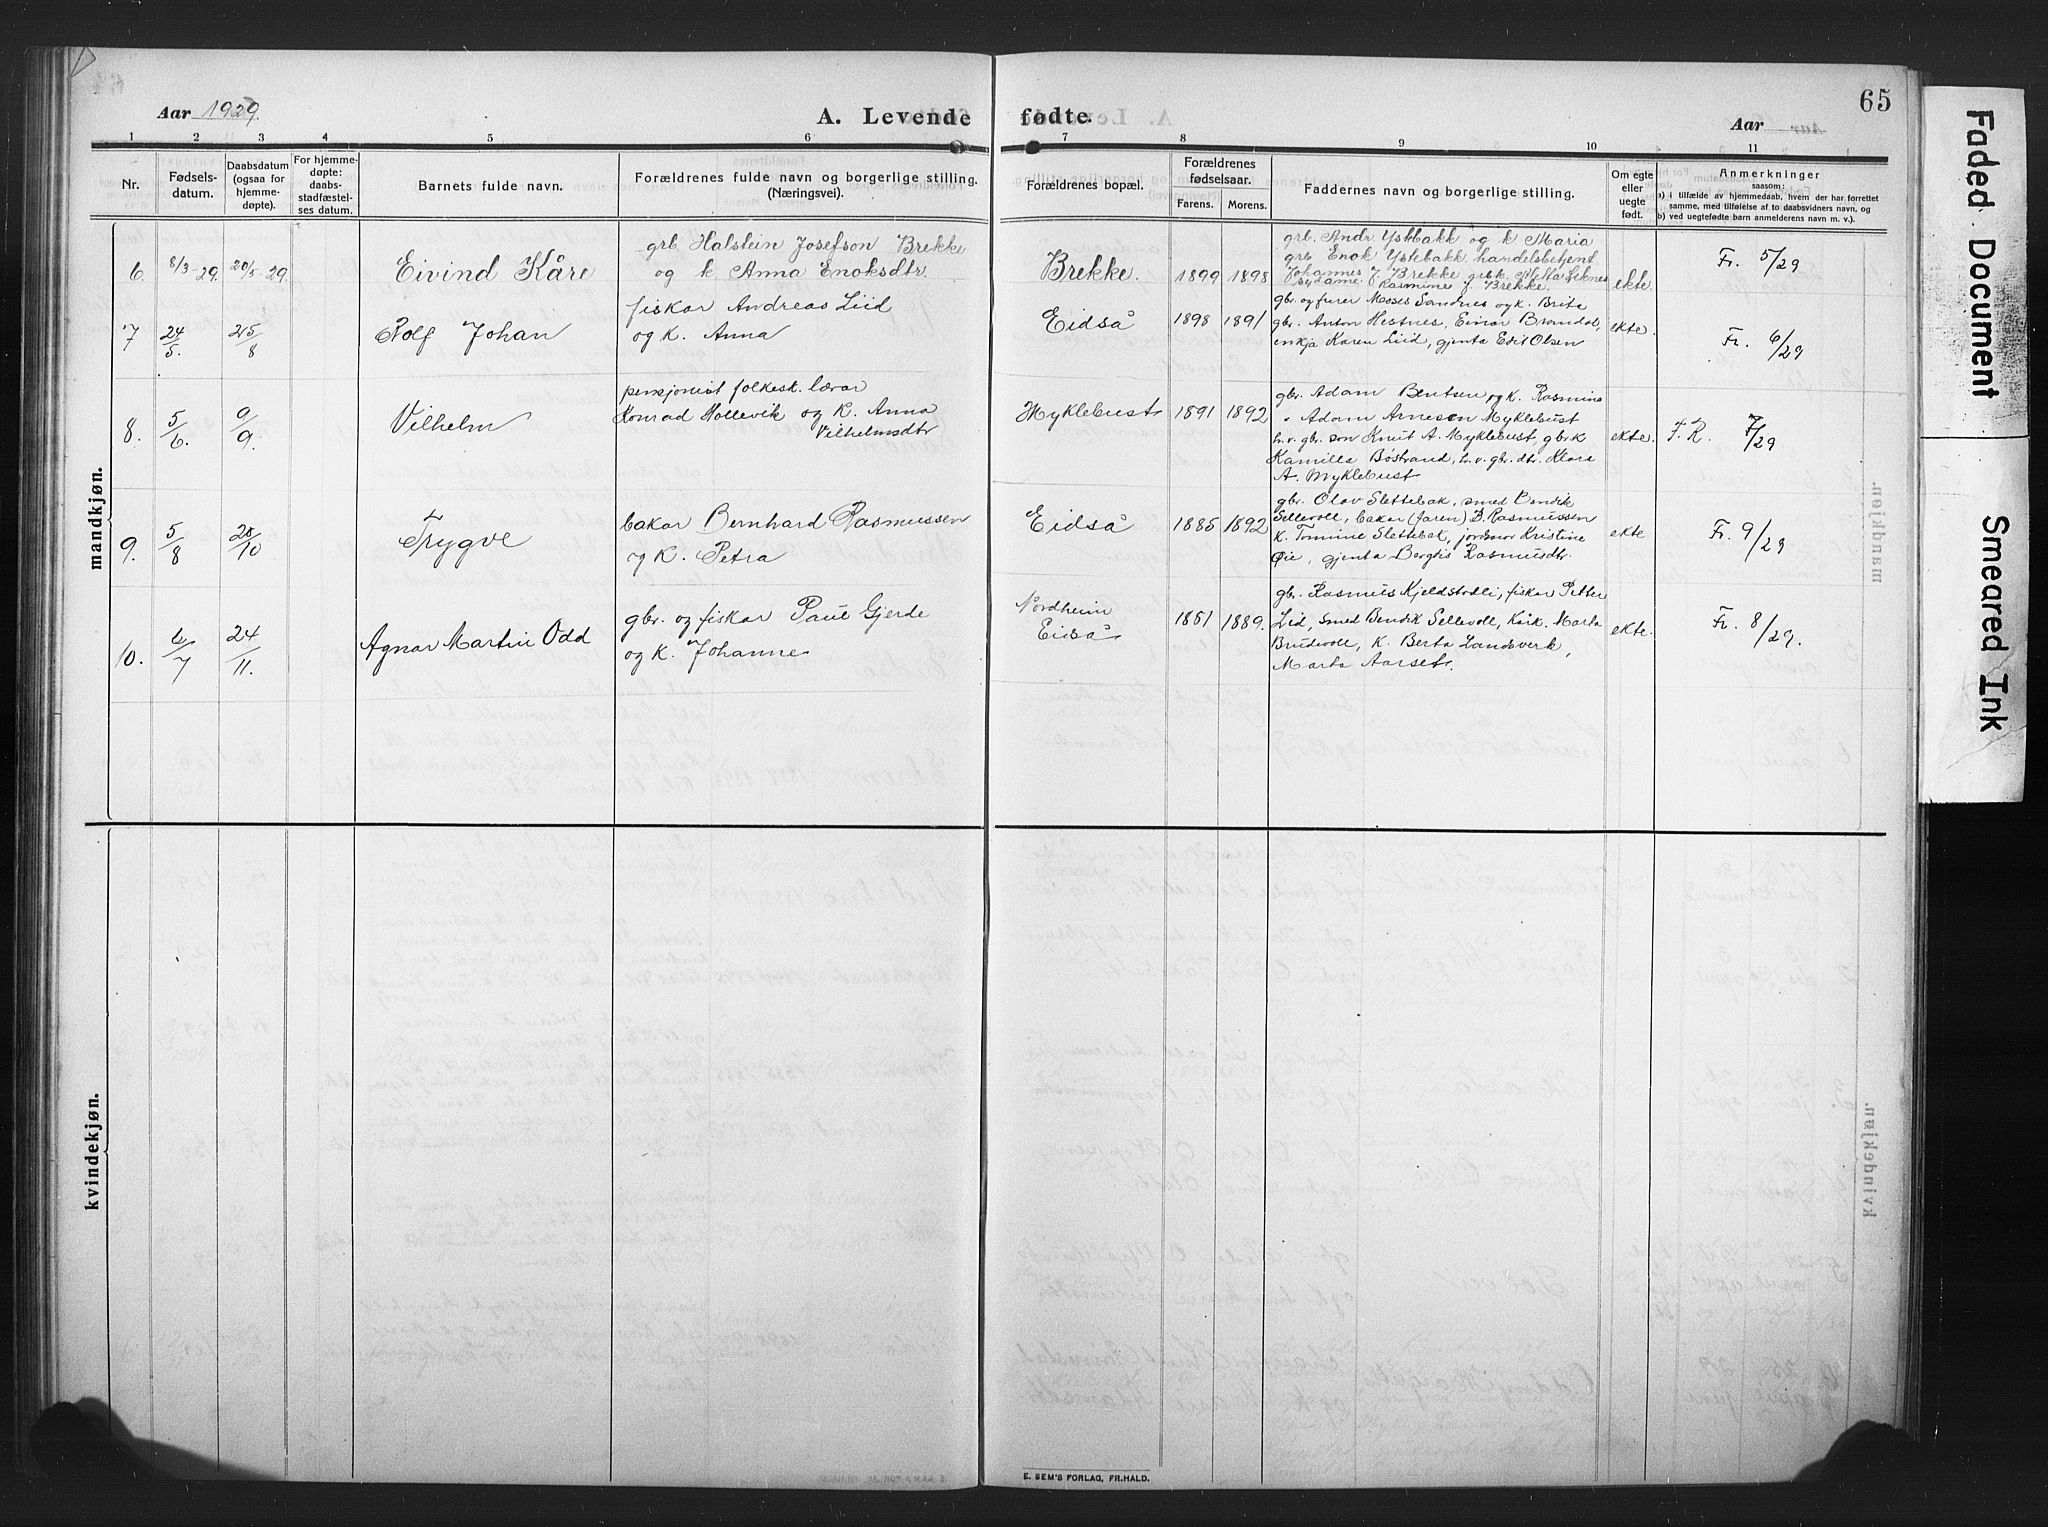 65
Aar 1929.
A. Levende fødte.
Aar
1 2 3 4 5 6 7 8 9 10 11
Nr.
Fødselsdatum.
Daabsdatum (ogsaa for hjemmedøpte).
For hjemmedøpte: daabsstadfæstelses datum.
Barnets fulde navn.
Forældrenes fulde navn og borgerlige stilling.
(Næringsvei).
Forældrenes bopæl.
Forældrenes fødselsaar.
Farens. Morens.
Faddernes navn og borgerlige stilling.
Om egte eller uegte født.
Anmerkninger
saasom:
a) i tilfælde av hjemmedaab, hvem der har forrettet samme, med tilføielse af to daabsvidners navn, og
b) ved uegtefødte barn anmelderens navn m. v.).
mandkjøn.
6. 8/3-29. 20/5-29
Eivind Kåre
grb. Halstein Josefson Brekke
og k Anna Enoksdtr.
Brekke.
1899 1898
grb. Andr Ystebakk og k Maria
grb Enok Ystebakk, handelsbetjent
Johannes J. Brekke, grbk. Aletta Leknes
sydame Rasmine J. Brekke.
ekte.
Fr. 5/29
7 24/5. 25/8
Rolf Johan
fiskar Andreas Liid
og k. Anna
Eidså
1898 1891
gbr. og furer Moses Sandnes og k. Brita
gbr. Anton Hestnes, Einar Brandal,
enkja Karen Liid, gjenta Edit Olsen
ekte.
Fr. 6/29
8. 5/6. 9/9.
Vilhelm
pensjonist folkesk. lærar
Konrad Hollevik og k. Anna
Vilhelmsdtr
Myklebust
1891 1892
gbr. Adam Bentsen og k. Rasmine
" Adam Arnesen Myklebust
h.v. gbr. son Knut A. Myklebust, gbr. k
Kamilla Bøstrand, h.v. gbr. dtr. Klara
A. Myklebust
ekte.
F. R. 7/29
9. 5/8 20/10
Trygve
bakar Bernhard Rasmussen
og k. Petra
Eidså
1885 1892
gbr. Olav Slettebak, smed Bendik
Sellevoll, bakar (faren) B. Rasmussen
k. Tomine Slettebak, jordmor Kristine
Øie, gjenta Bergtis Rasmusdtr.
ekte
Fr. 9/29
10. 6/7 24/11.
Agnar Martin Odd
gbr. og fiskar Paul Gjerde
og k. Johanne
Nordheim
Eidså
1881 1889.
gbr. Rasmus Kjeldstadli, fiskar Petter
Lid, smed Bendik Sellevoll, k. Marta
Brudevoll, k. Berta Landsverk,
Marta Aarset.
ekte.
Fr. 8/29.
kvindekjøn.
E. SEM'S FORLAG, FR.HALD.
Faded Document
Smeared Ink